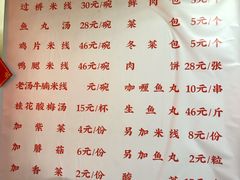 过桥米线 30元/碗 鲜肉包 5元/个
鱼丸汤 28元/碗 菜包 5元/个
鸡片米线 46元/碗 冬菜包 5元/个
鸭腿米线 46元/碗 肉饼 28元/张
老汤牛腩米线 元/碗 咖喱鱼丸 10元/串
桂花酸梅汤 15元/杯 生鱼丸 46元/斤
加紫菜 4元/份 另加米线 8元/份
加蘑菇 6元/份 另加鱼丸 2元/粒
加香菜 元/份 酸